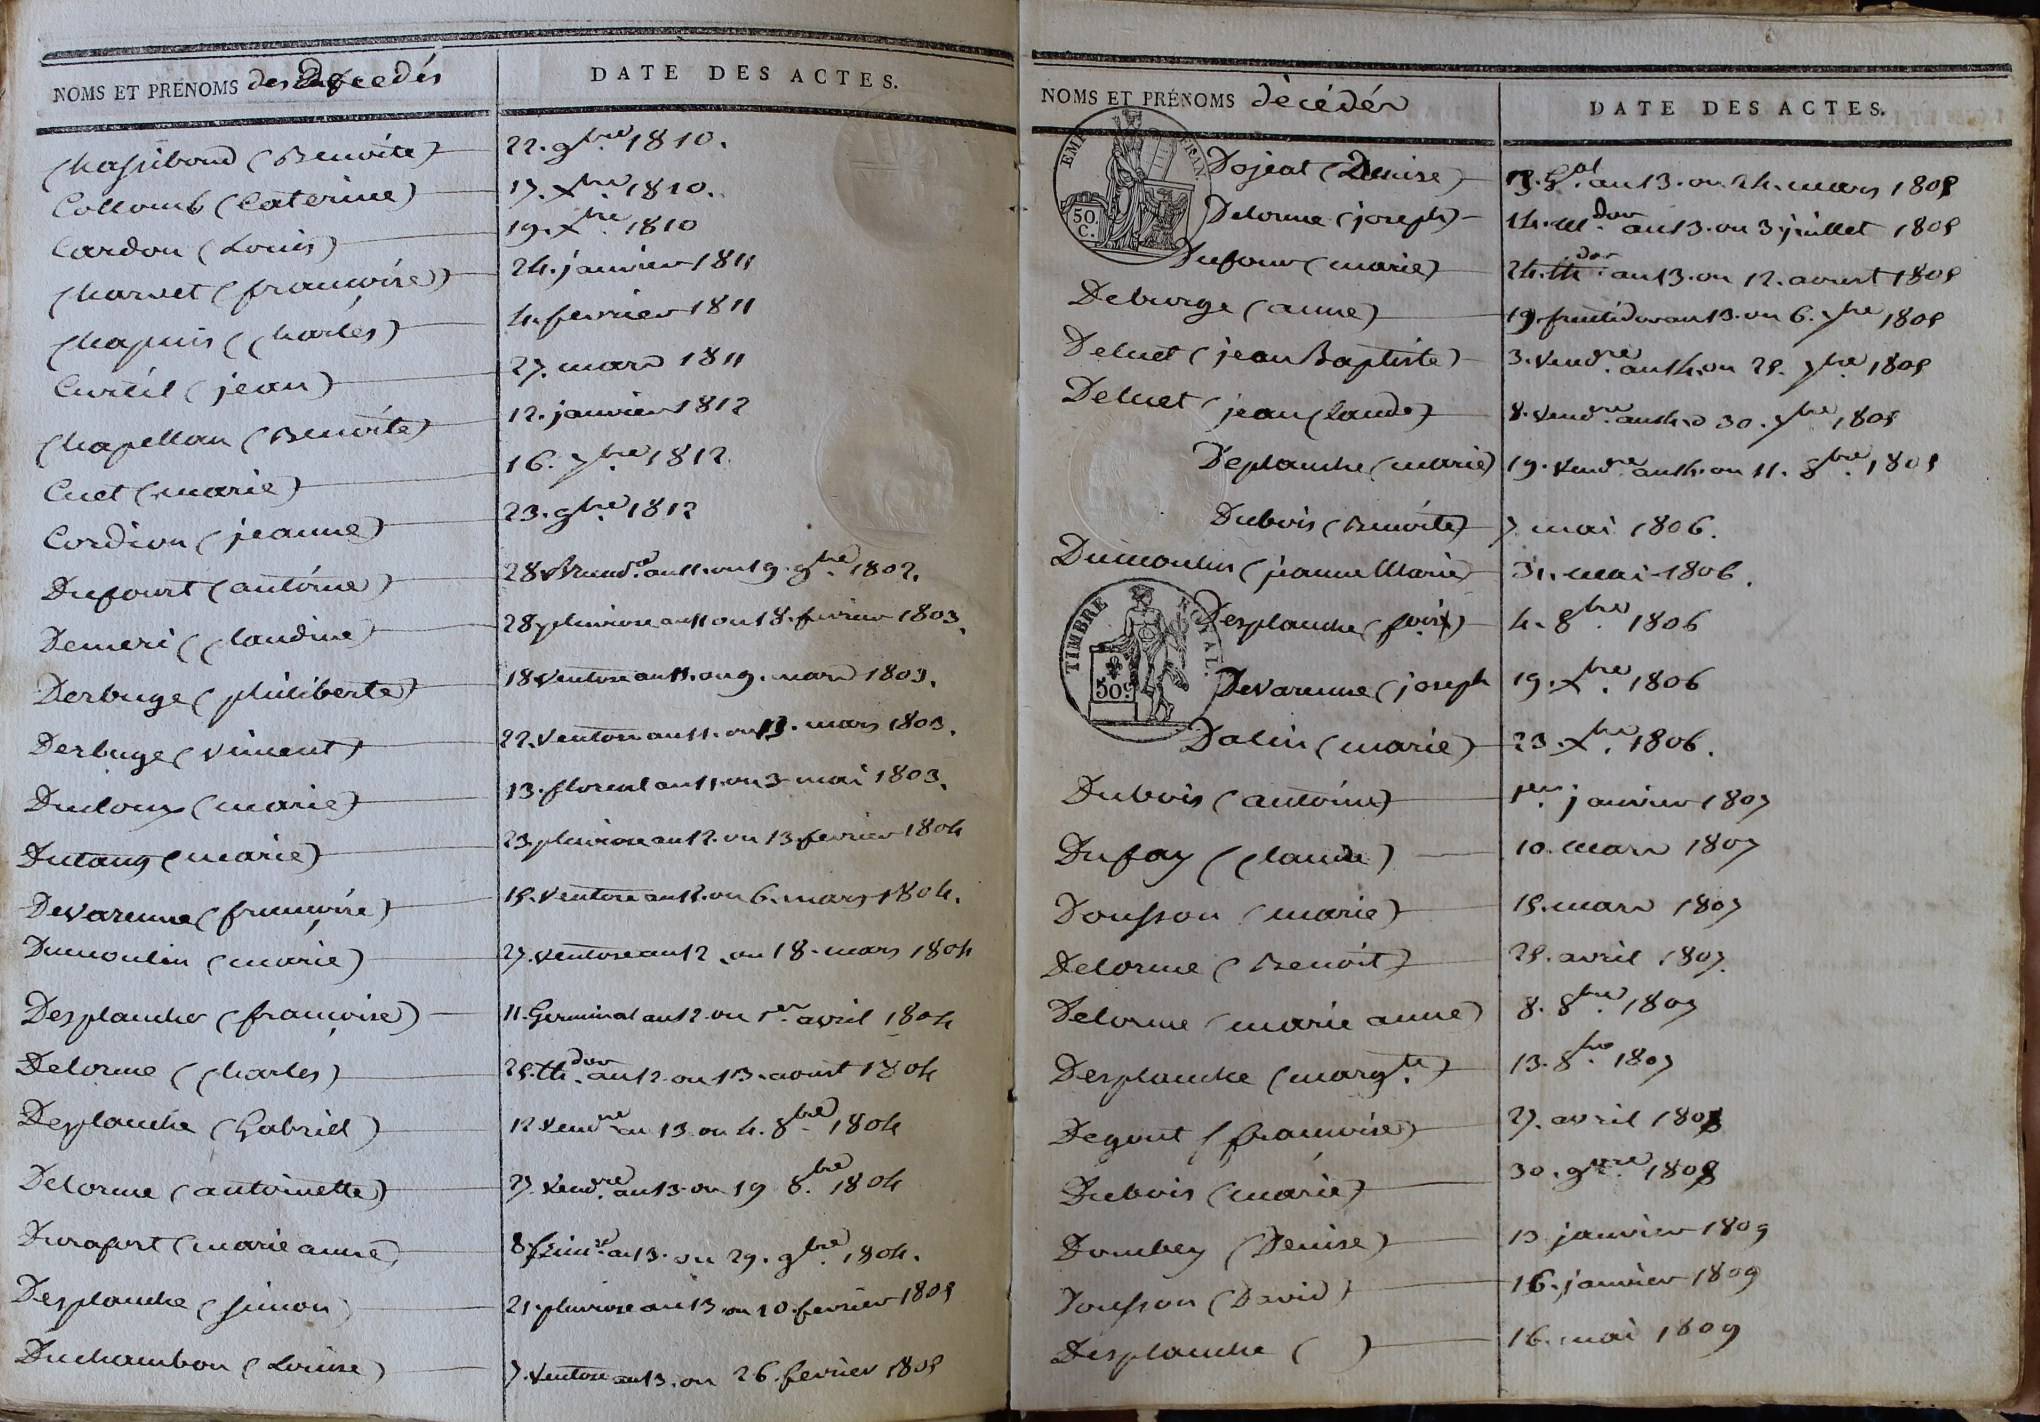 NOMS ET PRÉNOMS des Décédés
DATE DES ACTES.
Chassiboud (Benoite) 22. 9bre. 1810.
Collomb (Caterine) 17. Xbre. 1810.
Cardon (Louis) 19. Xbre. 1810
Charvet (françoise) 24. janvier 1811
Chapuis (Charles) 4. fevrier 1811
Curtil (jean) 27. mars 1811
Chapellan (Benoite) 12. janvier 1812
Cuet (marie) 16. 7bre. 1812
Cordion (jeanne) 23. 9bre. 1812
Dufourt (antoine) 28 an 11. ou 19. 9bre. 1802.
Demeri (Claudine) 28 pluviose an 11 ou 18. fevrier 1803.
Derbuge (philiberte) 18 Ventose an 11. ou 9. mars 1803.
Derbuge (Vincent) 22. Ventose an 11. ou 13. mars 1803.
Duloux (marie) 13. floreal an 11. ou 3 mai 1803.
Dutang (marie) 23 pluviose an 12. ou 13. fevrier 1804
Devarenne (françoise) 15. Ventose an 12. ou 6. mars 1804.
Dumoulin (marie) 27. Ventose an 12. ou 18. mars 1804
Desplanche (françoise) 11. Germinal an 12. ou 1er. avril 1804
Delorme (Charles) 25. thdor. an 12. ou 13. aoust 1804
Desplanche (Gabriel) 12 Vendre an 13 ou 4. 8bre. 1804
Delorme (antoinette) 27 Vendre. an 13 ou 19 8bre. 1804
Durafort (marie anne) 8 frimre. an 13. ou 29. 9bre. 1804.
Desplanche (Simon) 21. pluviose an 13 ou 10 fevrier 1805
Duchambon (Louise) 7. Ventose an 13. ou 26. fevrier 1805
NOMS ET PRÉNOMS décédés
DATE DES ACTES.
EMP. FRAN.
50.
C.
Dojeat (Denise) an 13. ou 24. mars 1805
Delorme (joseph) 14. Mdor. an 13. ou 3 juillet 1805
Dufour (marie) 24. thdor. an 13. ou 12. aoust 1805
Deburge (anne) 19. fructidor an 13. ou 6. 7bre 1805
Deluet (jean Baptiste) 3. Vendre. an 14. ou 25. 7bre. 1805
Deluet (jean Claude) 8. Vendre. an 14. 30. 7bre. 1805
Deplanche (marie) 19. Vendre an 14. ou 11. 8bre. 1805
Dubois (Benoite) 7 mai 1806.
Dumoulin (jeanne Marie) 31. mai 1806.
TIMBRE ROYAL.
50c
Desplanche 4. 8bre. 1806
Devarenne (joseph 19. Xbre. 1806
Dalin (marie) 23. Xbre. 1806.
Dubois (antoine) 1er. janvier 1807
Dufay (Claude) 10. mars 1807
Dousson (marie) 15. mars 1807
Delorme (Benoit) 25. avril 1807.
Delorme (marie anne) 8. 8bre. 1807
Desplanche (margte.) 13. 8bre. 1807
Degout (françoise) 27. avril 1808
Dubois (marie) 30. 9bre. 1808
Dombey (Denise) 13 janvier 1809
Dousson (David) 16. janvier 1809
Desplanche ( ) 16. mai 1809